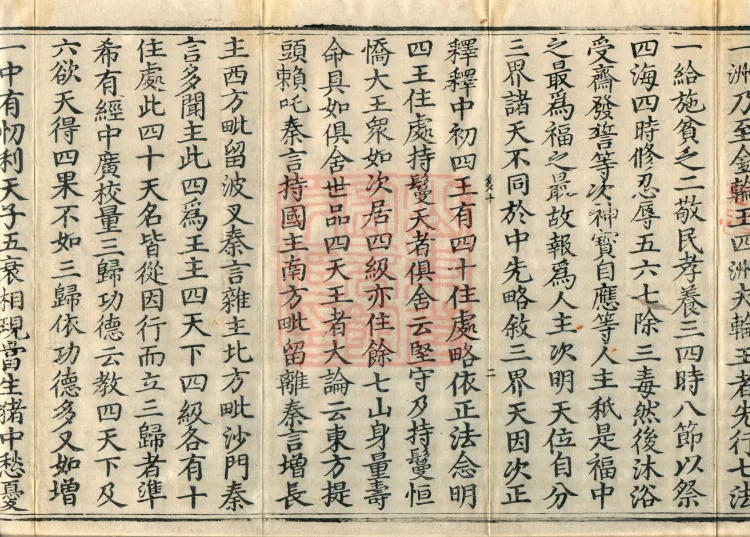 一洲乃至金輪王四洲天輪王者先行七法
一給施貧乏二敬民孝養三四時八節以祭
四海四時修忍辱五六七除三毒然後沐浴
受齋發誓等次神寶自應等人主秖是福中
之最爲福之最故報爲人主次明天位自分
三界諸天不同於中先略敘三界天因次正
釋釋中初四王有四十住處略依正法念明
四王住處持鬘天者俱舍云堅守及持鬘恒
憍大王衆如次居四級亦住餘七山身量壽
命具如俱舍世品四天王者大論云東方提
頭賴吒秦言持國主南方毗留離秦言增長
主西方毗留波叉秦言雜主北方毗沙門秦
言多聞主此四爲王主四天下四級各有十
住處此四十天名皆從因行而立三歸者準
希有經中廣校量三歸功德云教四天下及
六欲天得四果不如三歸依功德多又如增
一中有忉利天子五衰相現當生猪中愁憂